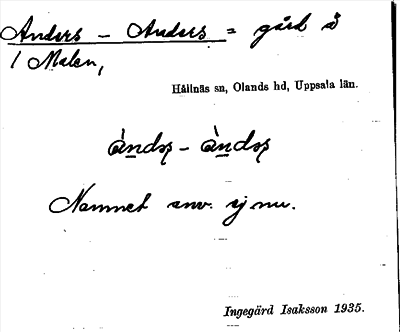 Anders - Anders = gård å
/ Malen,
Hållnäs sn, Olands hd, Uppsala län.
Namnet anv. ej nu.
Ingegärd Isaksson 1935.